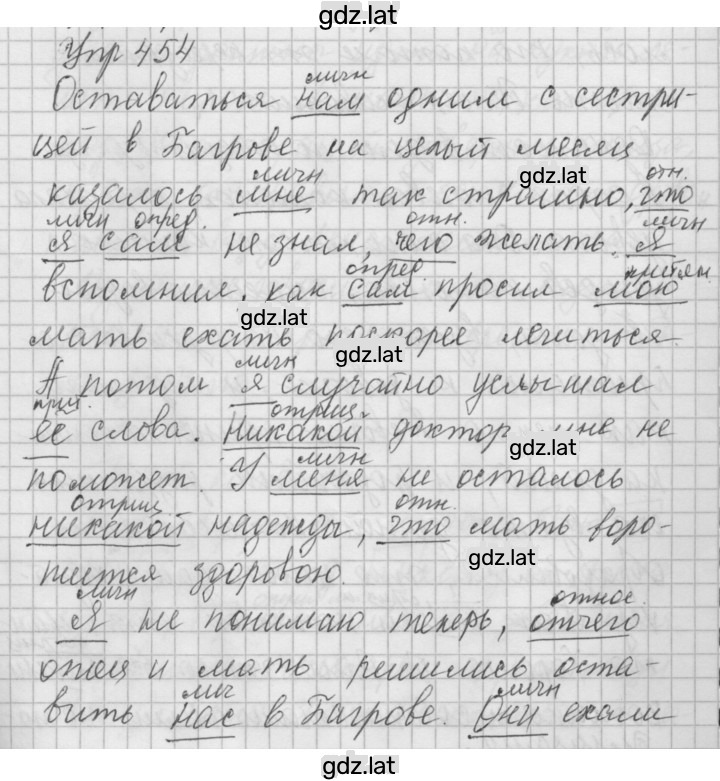 gdz.lat
Упр 454
личн
Оставаться нам одним с сестри-
цей в Багрове на целый месяц
личн gdz.lat отн.
казалось мне так страшно, что
личн опред. отн. личн
я сам не знал, чего желать. Я
опред притяж
вспомнил, как сам просил мою
gdz.lat
мать ехать поскорее лечиться.
gdz.lat
личн
А потом я случайно услышал
прит. отриц.
её слова. Никакой доктор мне не
gdz.lat
личн
поможет. У меня не осталось
отриц отн.
никакой надежды, что мать воро-
gdz.lat
тится здоровою.
личн относ.
Я не понимаю теперь, отчего
отец и мать решились оста-
лич личн
вить нас в Багрове. Они ехали
gdz.lat